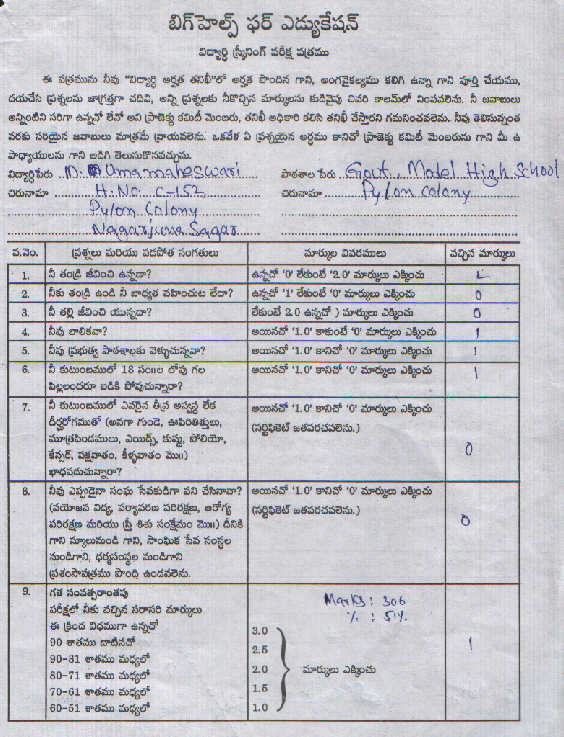 బిగ్‌హెల్ప్ ఫర్ ఎడ్యుకేషన్
విద్యార్థి స్క్రీనింగ్ పరీక్ష పత్రము
ఈ పత్రమును నీవు "విద్యార్థి అర్హత తనిఖీ"లో అర్హత పొందిన గాని, అంగవైకల్యము కలిగి ఉన్నా గాని పూర్తి చేయుము,
దయచేసి ప్రశ్నలను జాగ్రత్తగా చదివి, అన్ని ప్రశ్నలకు నీకొచ్చిన మార్కులను కుడివైపు చివరి కాలమ్‌లో నింపవలెను. నీ జవాబులు
అన్నింటిని సరిగా ఉన్నవో లేవో అని ప్రాజెక్టు కమిటీ మెంబరు, తనిఖీ అధికారి కలిసి తనిఖీ చేస్తారని గమనించవలెను. నీవు తెలిసినంత
వరకు సరియైన జవాబులు మాత్రమే వ్రాయవలెను. ఒకవేళ ఏ ప్రశ్నయైన అర్థము కానిచో ప్రాజెక్టు కమిటీ మెంబరును గాని మీ ఉ
పాధ్యాయులను గాని అడిగి తెలుసుకొనవచ్చును.
విద్యార్థిపేరు M. Umamaheswari పాఠశాల పేరు Govt. Model High School
చిరునామా H.No. C-152 చిరునామా Pylon colony
Pylon Colony
Nagarjuna Sagar
వ.నెం. ప్రశ్నలు మరియు పరిపోత సంగతులు మార్కుల వివరములు వచ్చిన మార్కులు
1. నీ తండ్రి జీవించి ఉన్నాడా? ఉన్నచో '0' లేకుంటే '2.0' మార్కులు ఎక్కించు
2. నీకు తండ్రి ఉండి నీ బాధ్యత వహించుట లేదా? ఉన్నచో '1' లేకుంటే '0' మార్కులు ఎక్కించు 0
3. నీ తల్లి జీవించి యున్నదా? లేకుంటే 2.0 ఉన్నచో ) మార్కులు ఎక్కించు 0
4. నీవు బాలికవా? అయినచో '1.0' కాకుంటే '0' మార్కులు ఎక్కించు 1
5. నీవు ప్రభుత్వ పాఠశాలకు వెళ్ళుచున్నావా? అయినచో '1.0' కానిచో '0' మార్కులు ఎక్కించు 1
6. నీ కుటుంబములో 18 సం॥ల లోపు గల అయినచో '1.0' కానిచో '0' మార్కులు ఎక్కించు 1
పిల్లలందరూ బడికి పోవుచున్నారా?
7. నీ కుటుంబములో ఎవరైన తీవ్ర అస్వస్థ లేక అయినచో '1.0' కానిచో '0' మార్కులు ఎక్కించు
దీర్ఘరోగముతో (అనగా గుండె, ఊపిరితిత్తులు, (సర్టిఫికెట్ జతపరచవలెను.)
మూత్రపిండములు, ఎయిడ్స్, కుష్టు, పోలియో, 0
కేన్సర్, పక్షవాతం, కీళ్ళవాతం మొ॥)
బాధపడుచున్నారా?
8. నీవు ఎప్పుడైనా సంఘ సేవకుడిగా పని చేసినావా? అయినచో '1.0' కానిచో '0' మార్కులు ఎక్కించు
(వయోజన విద్య, పర్యావరణ పరిరక్షణ, ఆరోగ్య (సర్టిఫికెట్ జతపరచవలెను.)
పరిరక్షణ మరియు స్త్రీ శిశు సంక్షేమం మొ॥) దీనికి 0
గాని స్కూలునుండి గాని, సాంఘిక సేవ సంస్థల
నుండిగాని, ధర్మసంస్థల నుండిగాని
ప్రశంసాపత్రము పొంది ఉండవలెను.
9. గత సంవత్సరాంతపు Marks : 306
పరీక్షలో నీకు వచ్చిన సరాసరి మార్కులు % : 51%
ఈ క్రింద విధముగా ఉన్నచో 1
90 శాతము దాటినచో 3.0
90-81 శాతము మధ్యలో 2.5
80-71 శాతము మధ్యలో 2.0 మార్కులు ఎక్కించు
70-61 శాతము మధ్యలో 1.5
60-51 శాతము మధ్యలో 1.0